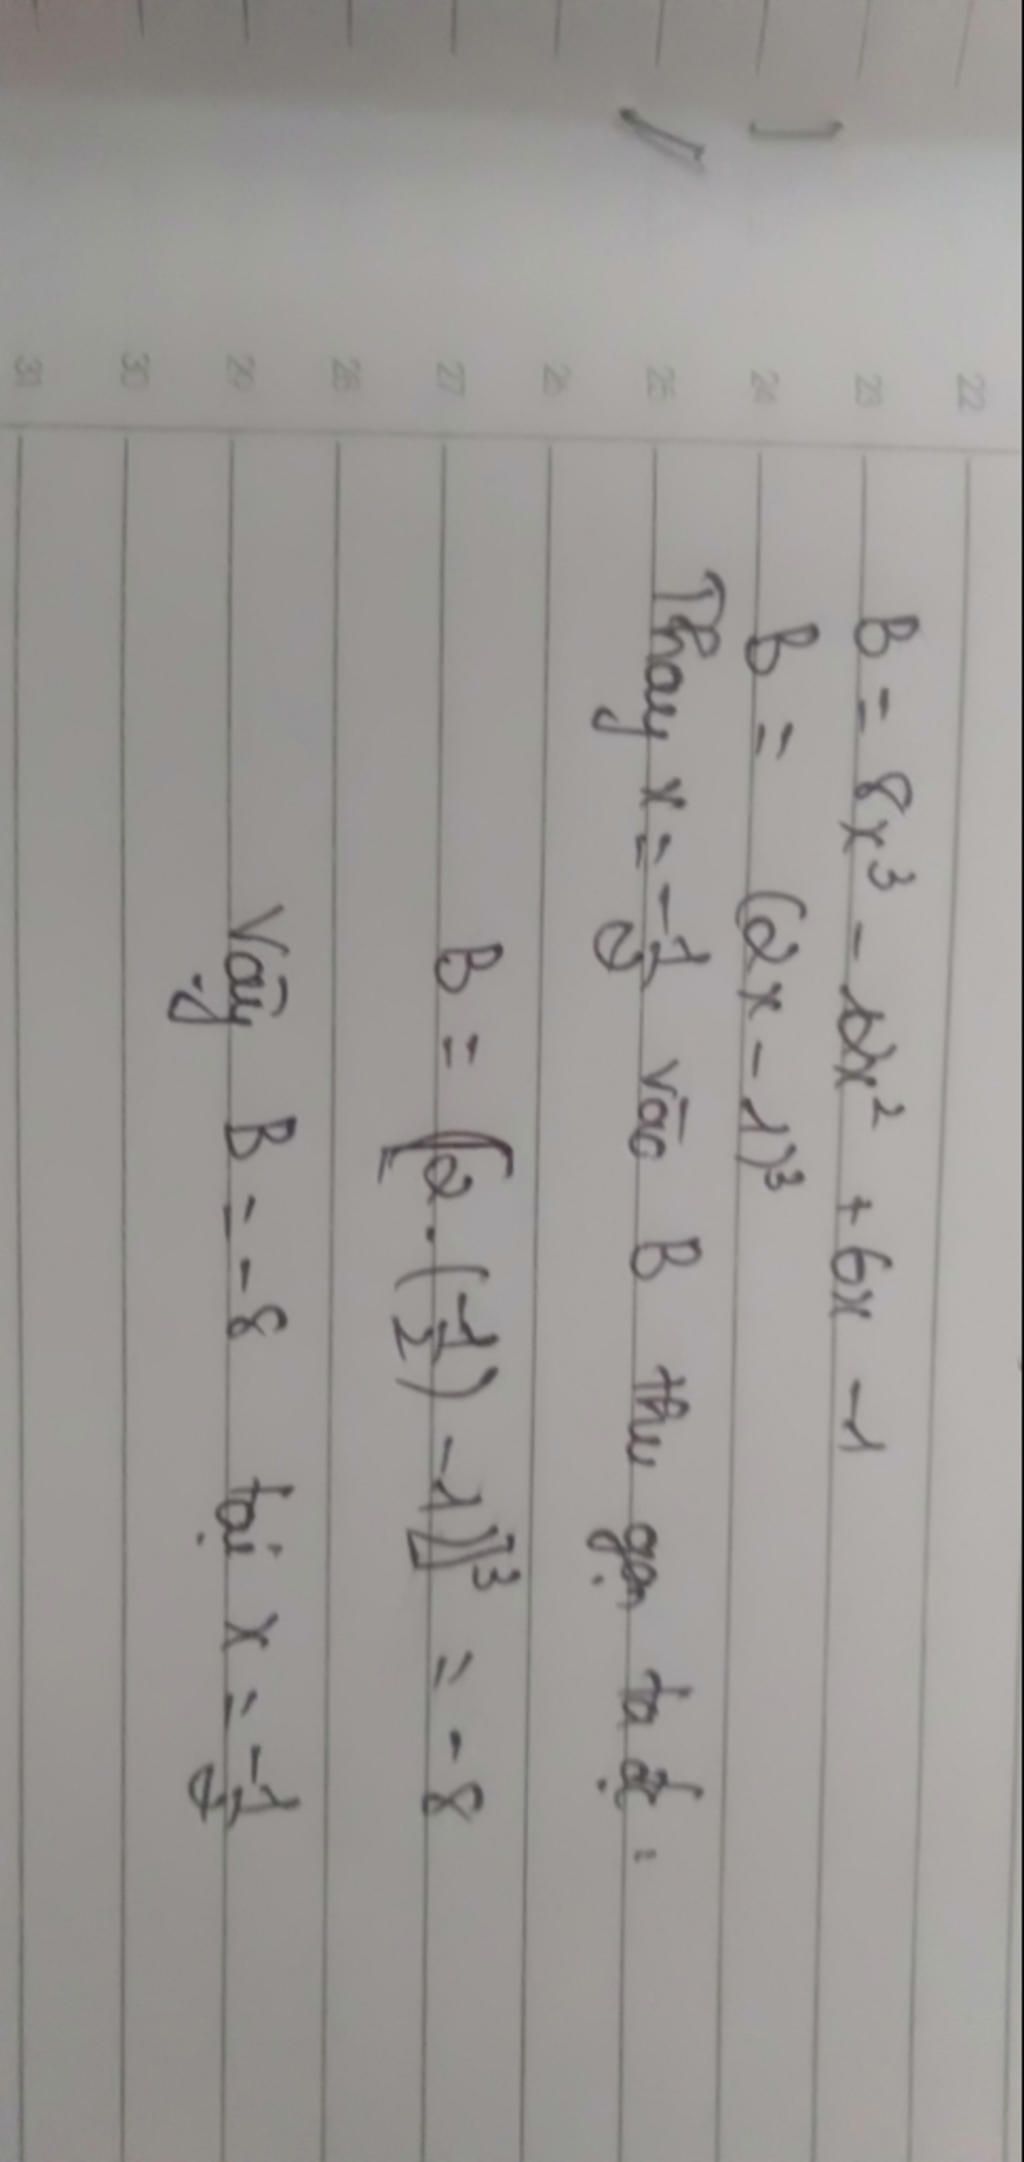 22
23 B = 8x³ - 12x² + 6x - 1
24 B = (2x - 1)³
25 Thay x = -1/2 vào B thu gọn ta đc:
26
27 B = [2.(-1/2) - 1)]³ = -8
28
29 Vậy B = -8 tại x = -1/2
30
31